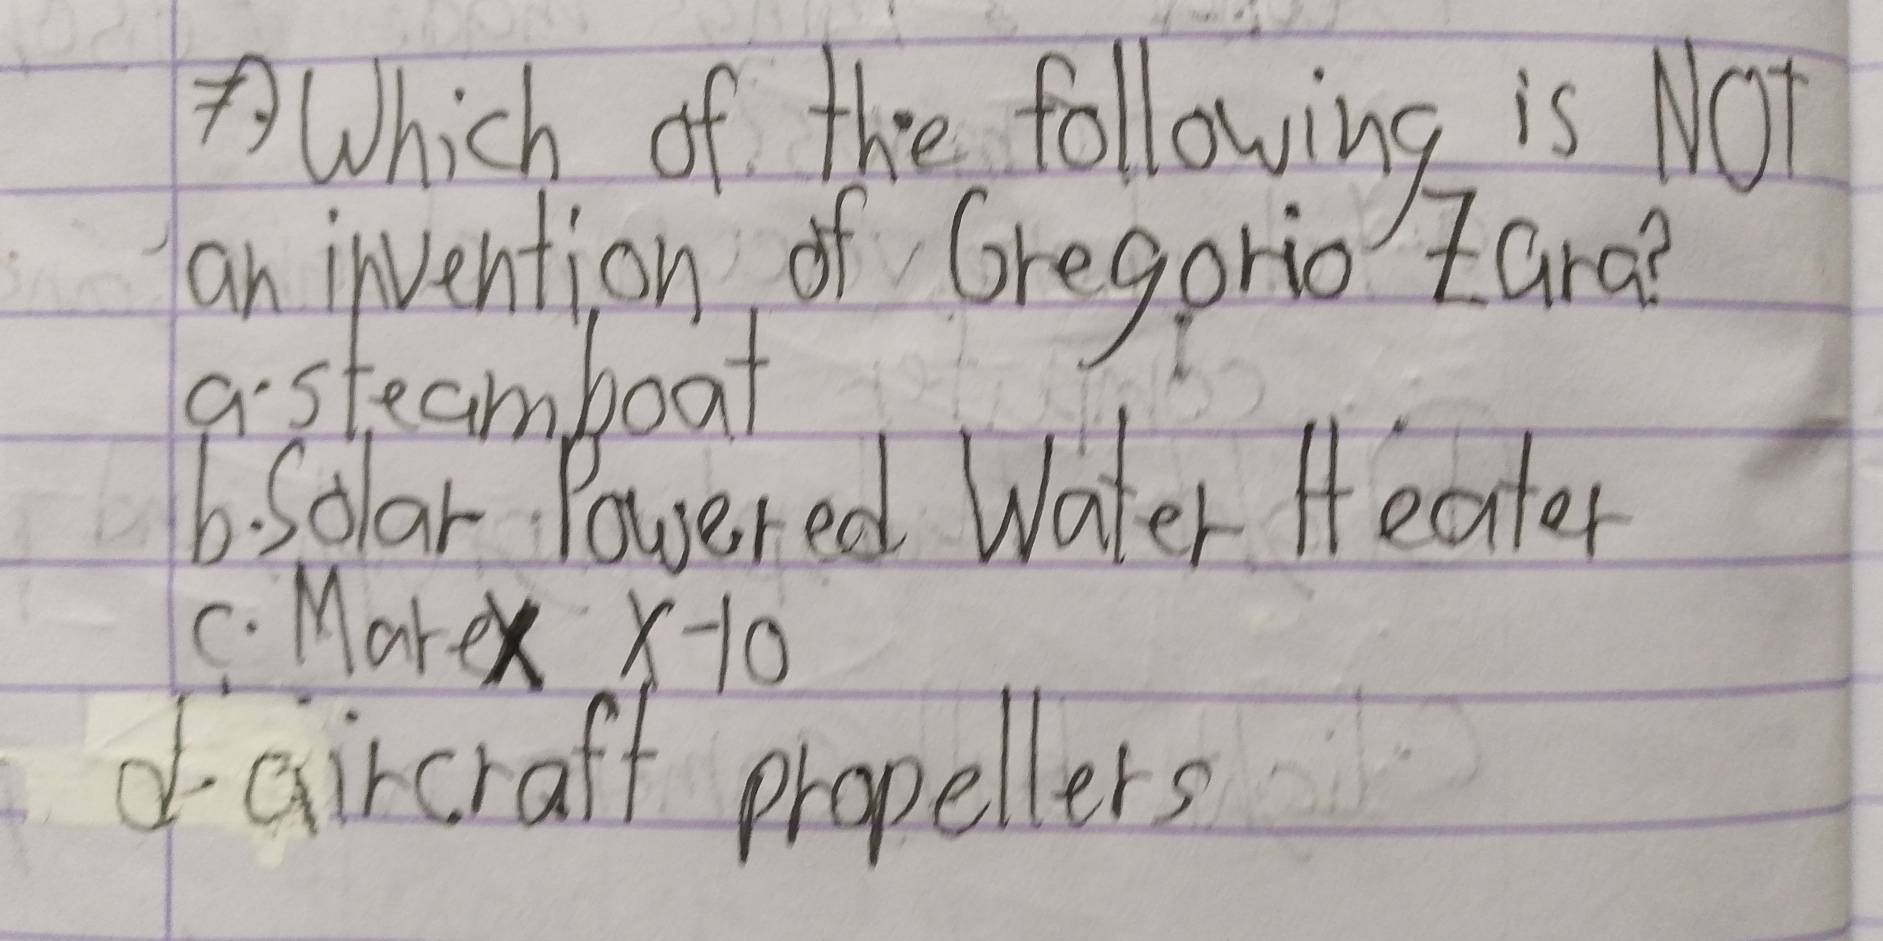 7.) Which of the following is NOT
an invention of Gregorio Zara?
a. steamboat
b. Solar Powered Water Heater
c. Marex X-10
d. aircraft propellers